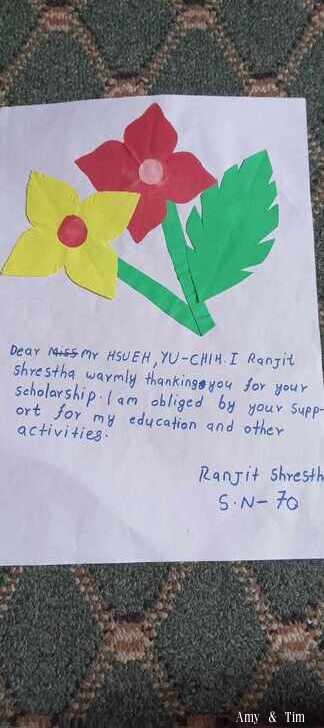 Dear Miss Mr HSUEH, YU-CHIH. I Ranjit
shrestha warmly thanking you for your
scholarship. I am obliged by your supp-
ort for my education and other
activities.
Ranjit Shresth
S.N- 70
Amy & Tim